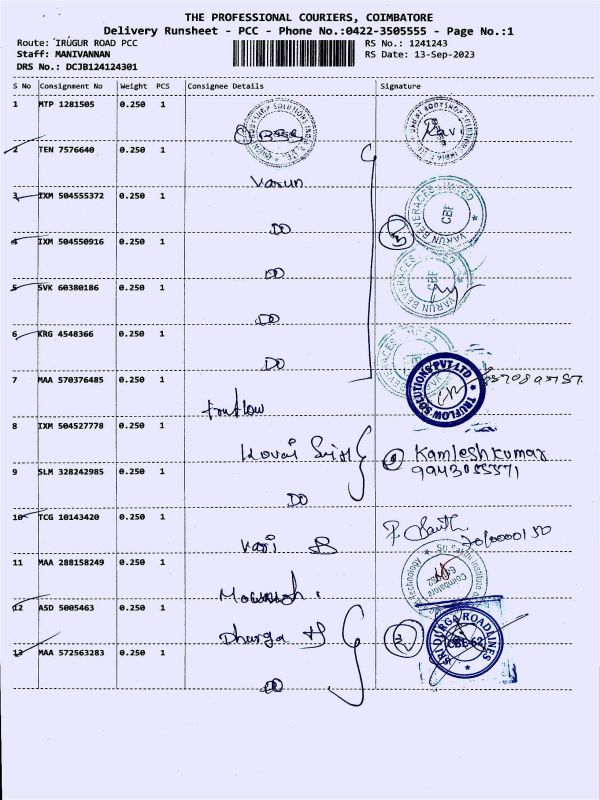 THE PROFESSIONAL COURIERS, COIMBATORE
Delivery Runsheet - PCC - Phone No.:0422-3505555 - Page No.:1
Route: IRUGUR ROAD PCC
RS No.: 1241243
Staff: MANIVANNAN
RS Date: 13-Sep-2023
DRS No.: DCJB124124301
S No Consignment No Weight PCS Consignee Details Signature
1 MTP 1281505 0.250 1
Ravi
2 TEN 7576640 0.250 1
Varun
3 IXM 504555372 0.250 1
VARUN BEVERAGES LIMITED
CBE
DO
4 IXM 504550916 0.250 1
DO
VARUN BEVERAGES
CBE
5 SVK 60380186 0.250 1
DO
6 KRG 4548366 0.250 1
DO
7 MAA 570376485 0.250 1
Truflow
TRUFLOW SOLUTIONS PVT LTD
8 IXM 504527778 0.250 1
Kamlesh kumar
9943055571
9 SLM 328242985 0.250 1
DO
10 TCG 10143420 0.250 1
11 MAA 288158249 0.250 1
Coimbatore
12 ASD 5005463 0.250 1
Dhurga
3
SRI DURGA ROADLINES
CBE-62
13 MAA 572563283 0.250 1
DO